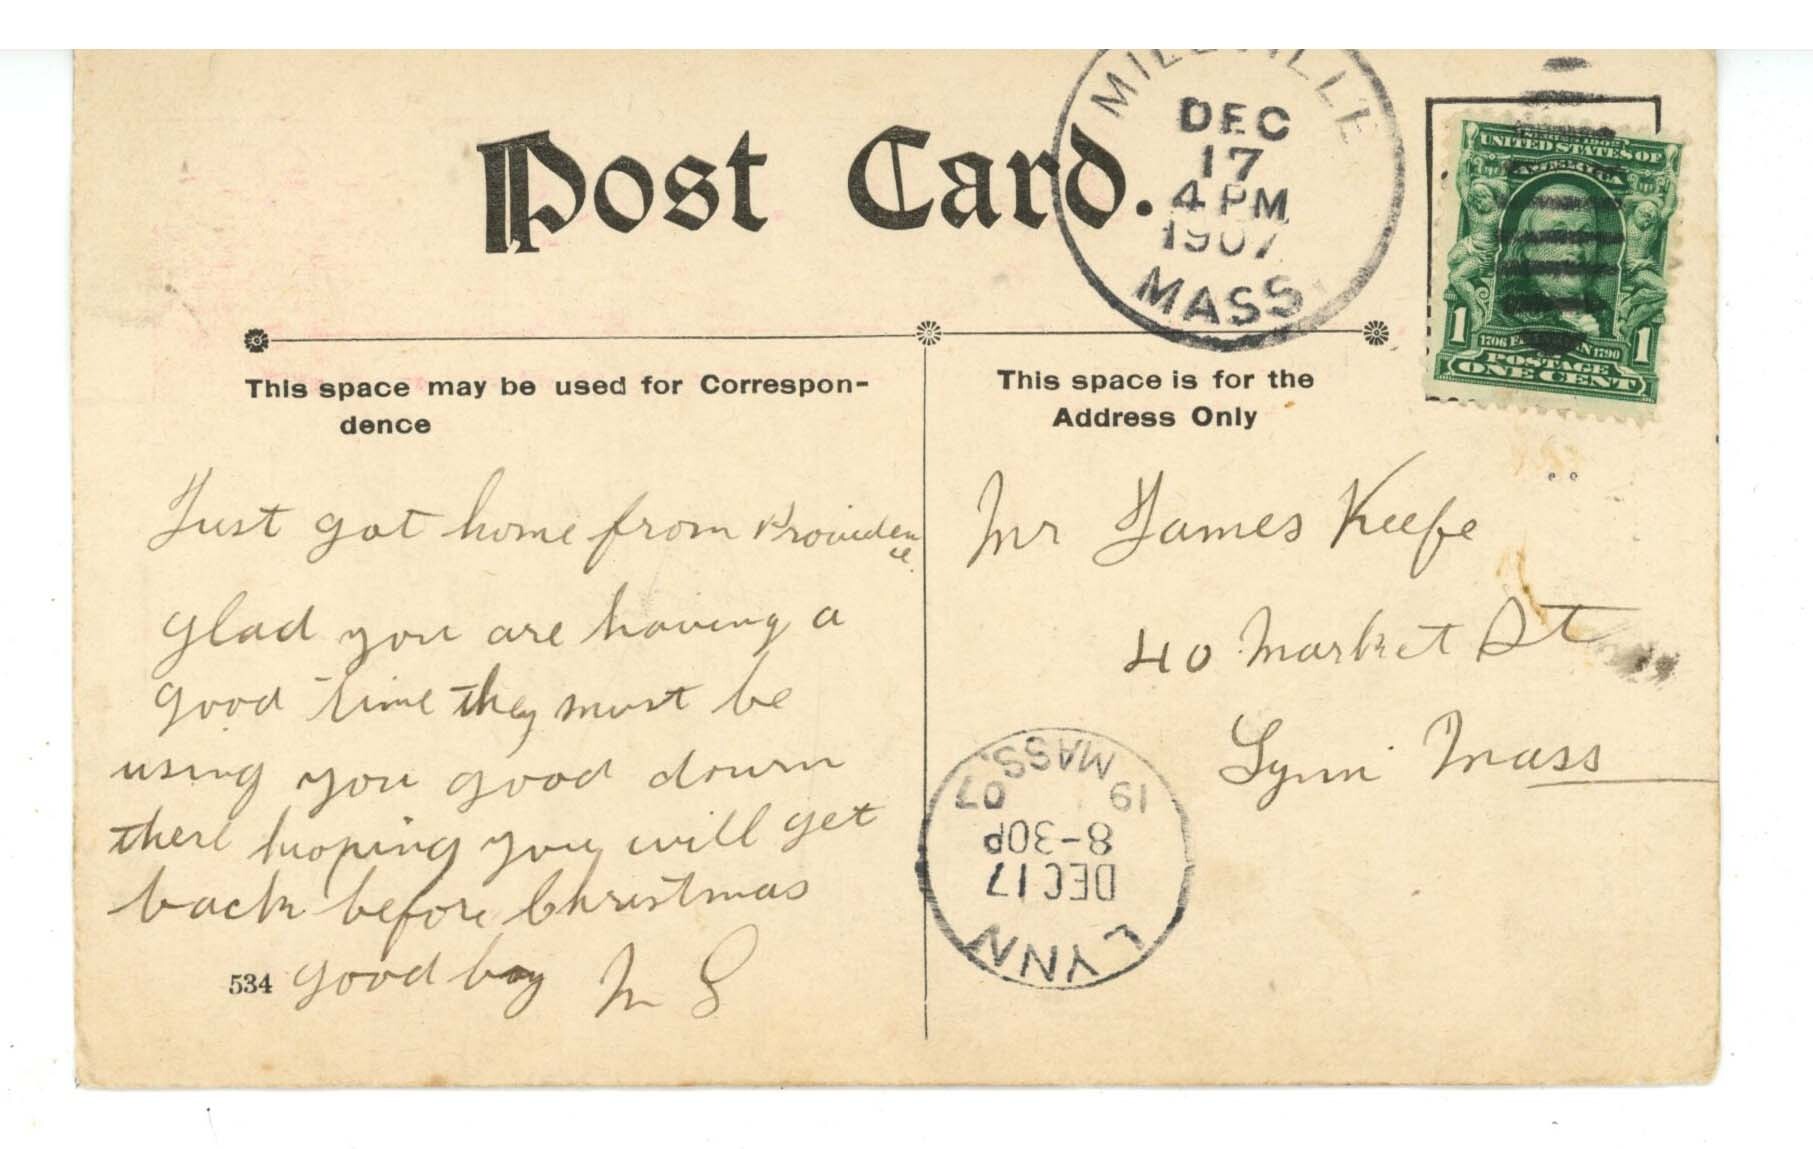 Post Card.
MILLVILLE
DEC
17
4 PM
1907
MASS.
UNITED STATES OF
AMERICA
1 1706 FRANKLIN 1790 1
POSTAGE
ONE CENT
This space may be used for Correspon-
dence
This space is for the
Address Only
Just got home from Providen
ce.
Glad you are having a
good time they must be
using you good down
there hoping you will get
back before Christmas
good boy M S
534
Mr James Keefe
40 Market St
Lynn Mass
LYNN
DEC 17
8-30P
19 07
MASS.